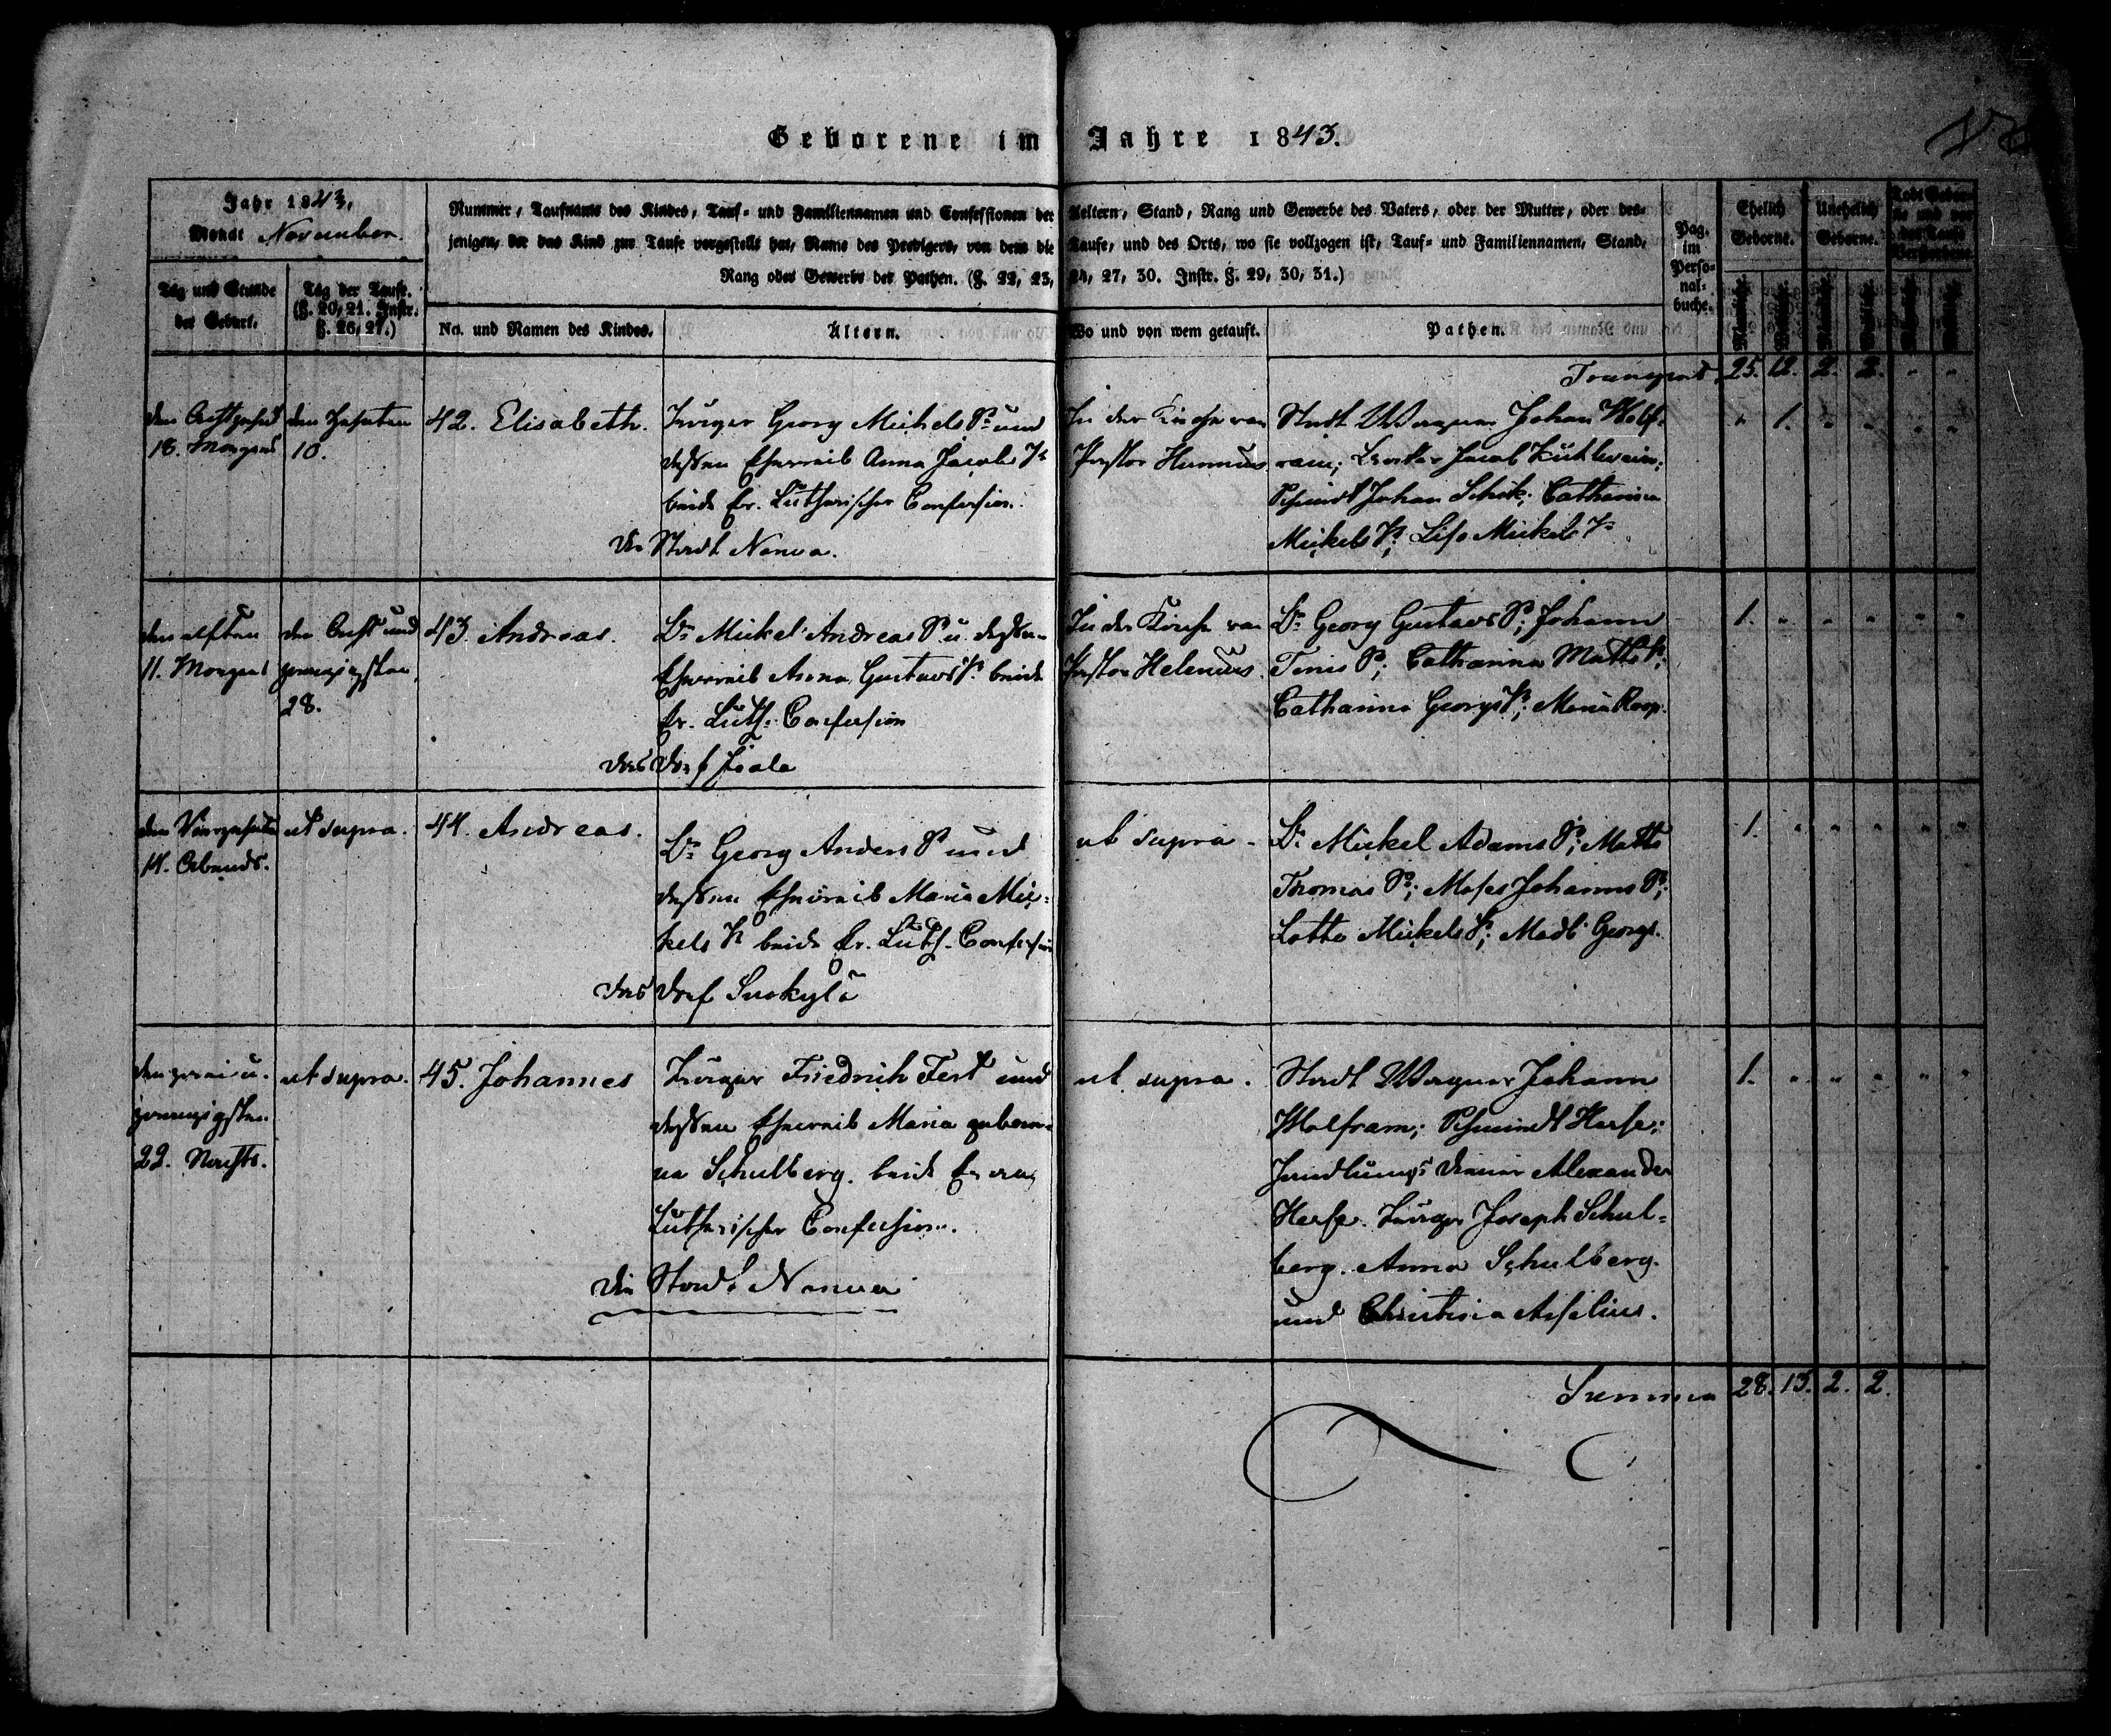 Geborene im Jahre 1843.
Jahr 1843.
Monat November.
Tag und Stunde
der Geburt.
Tag der Taufe.
(§. 20, 21. Instr.
§. 26, 27.)
Nummer, Taufname des Kindes, Tauf- und Familiennamen und Confessionen der Aeltern, Stand, Rang und Gewerbe des Vaters, oder der Mutter, oder des-
jenigen, der das Kind zur Taufe vorgestellt hat, Name des Predigers, von dem die Taufe, und des Orts, wo sie vollzogen ist, Tauf- und Familiennamen, Stand,
Rang oder Gewerbe der Pathen. (§. 22, 23, 24, 27, 30. Instr. §. 29, 30, 31.)
No. und Namen des Kindes.
Ältern.
Wo und von wem getauft.
Pathen.
Pag.
im
Perso-
nal-
buche.
Ehelich
Geborne.
Unehelich
Geborne.
Todt Gebor-
ne und vor
der Taufe
Verstorbene.
Männliche.
Weibliche.
Männliche.
Weibliche.
Männliche.
Weibliche.
Transport 25. 12. 2. 2. " "
den
18. Morgens
den Zehnten
10.
42. Elisabeth.
Bürger Georg Michels S. und
dessen Eheweib Anna Jacobs T.
beide Ev. Lutherischer Confession.
die Stadt Narva.
In der Kirche von
Pastor Hunnius
Stadt Wagner Johan Wolf-
ram; Jacob
Schmidt Johan Schik; Catharina
Mickels T.; Liso Mickels T.
" 1. " " " "
den elften
11. Morgens
den Acht und
zwanzigsten,
28.
43. Andreas.
Br. Mickel Andreas S. u. dessen
Eheweib Anna Gustavs T. beide
Ev. Luth. Confession
das Dorf
In der Kirche von
Pastor Helenius.
Br. Georg Gustavs S.; Johann
Tenis S.; Catharina Matts T.;
Catharina Georgs T.; Maria
1. " " " " "
den Vierzehnten
14. Abends.
ut supra.
44. Andreas.
Br. Georg Anders S. und
dessen Eheweib Maria Mic-
kels T. beide Ev. Luth. Confession
das Dorf
ut supra.
Br. Mickel Adams S.; Matts
Thomas S.; Moses Johanns S.;
Lotta Mickels T.; Madl. Georgs.
1. " " " " "
den zwei u.
zwanzigsten
22. Nachts.
ut supra.
45. Johannes
Bürger Friedrich Fest und
dessen Eheweib Maria gebore-
ne Schulberg. beide Evan.
Lutherischer Confession.
die Stadt Narva
ut supra.
Stadt Wagner Johann
Wolfram; Schmidt Herse;
Handlungs Diener Alexander
Herse. Bürger Joseph Schul-
berg. Anna Schulberg.
und Christina
1. " " " " "
Summa 28. 13. 2. 2.